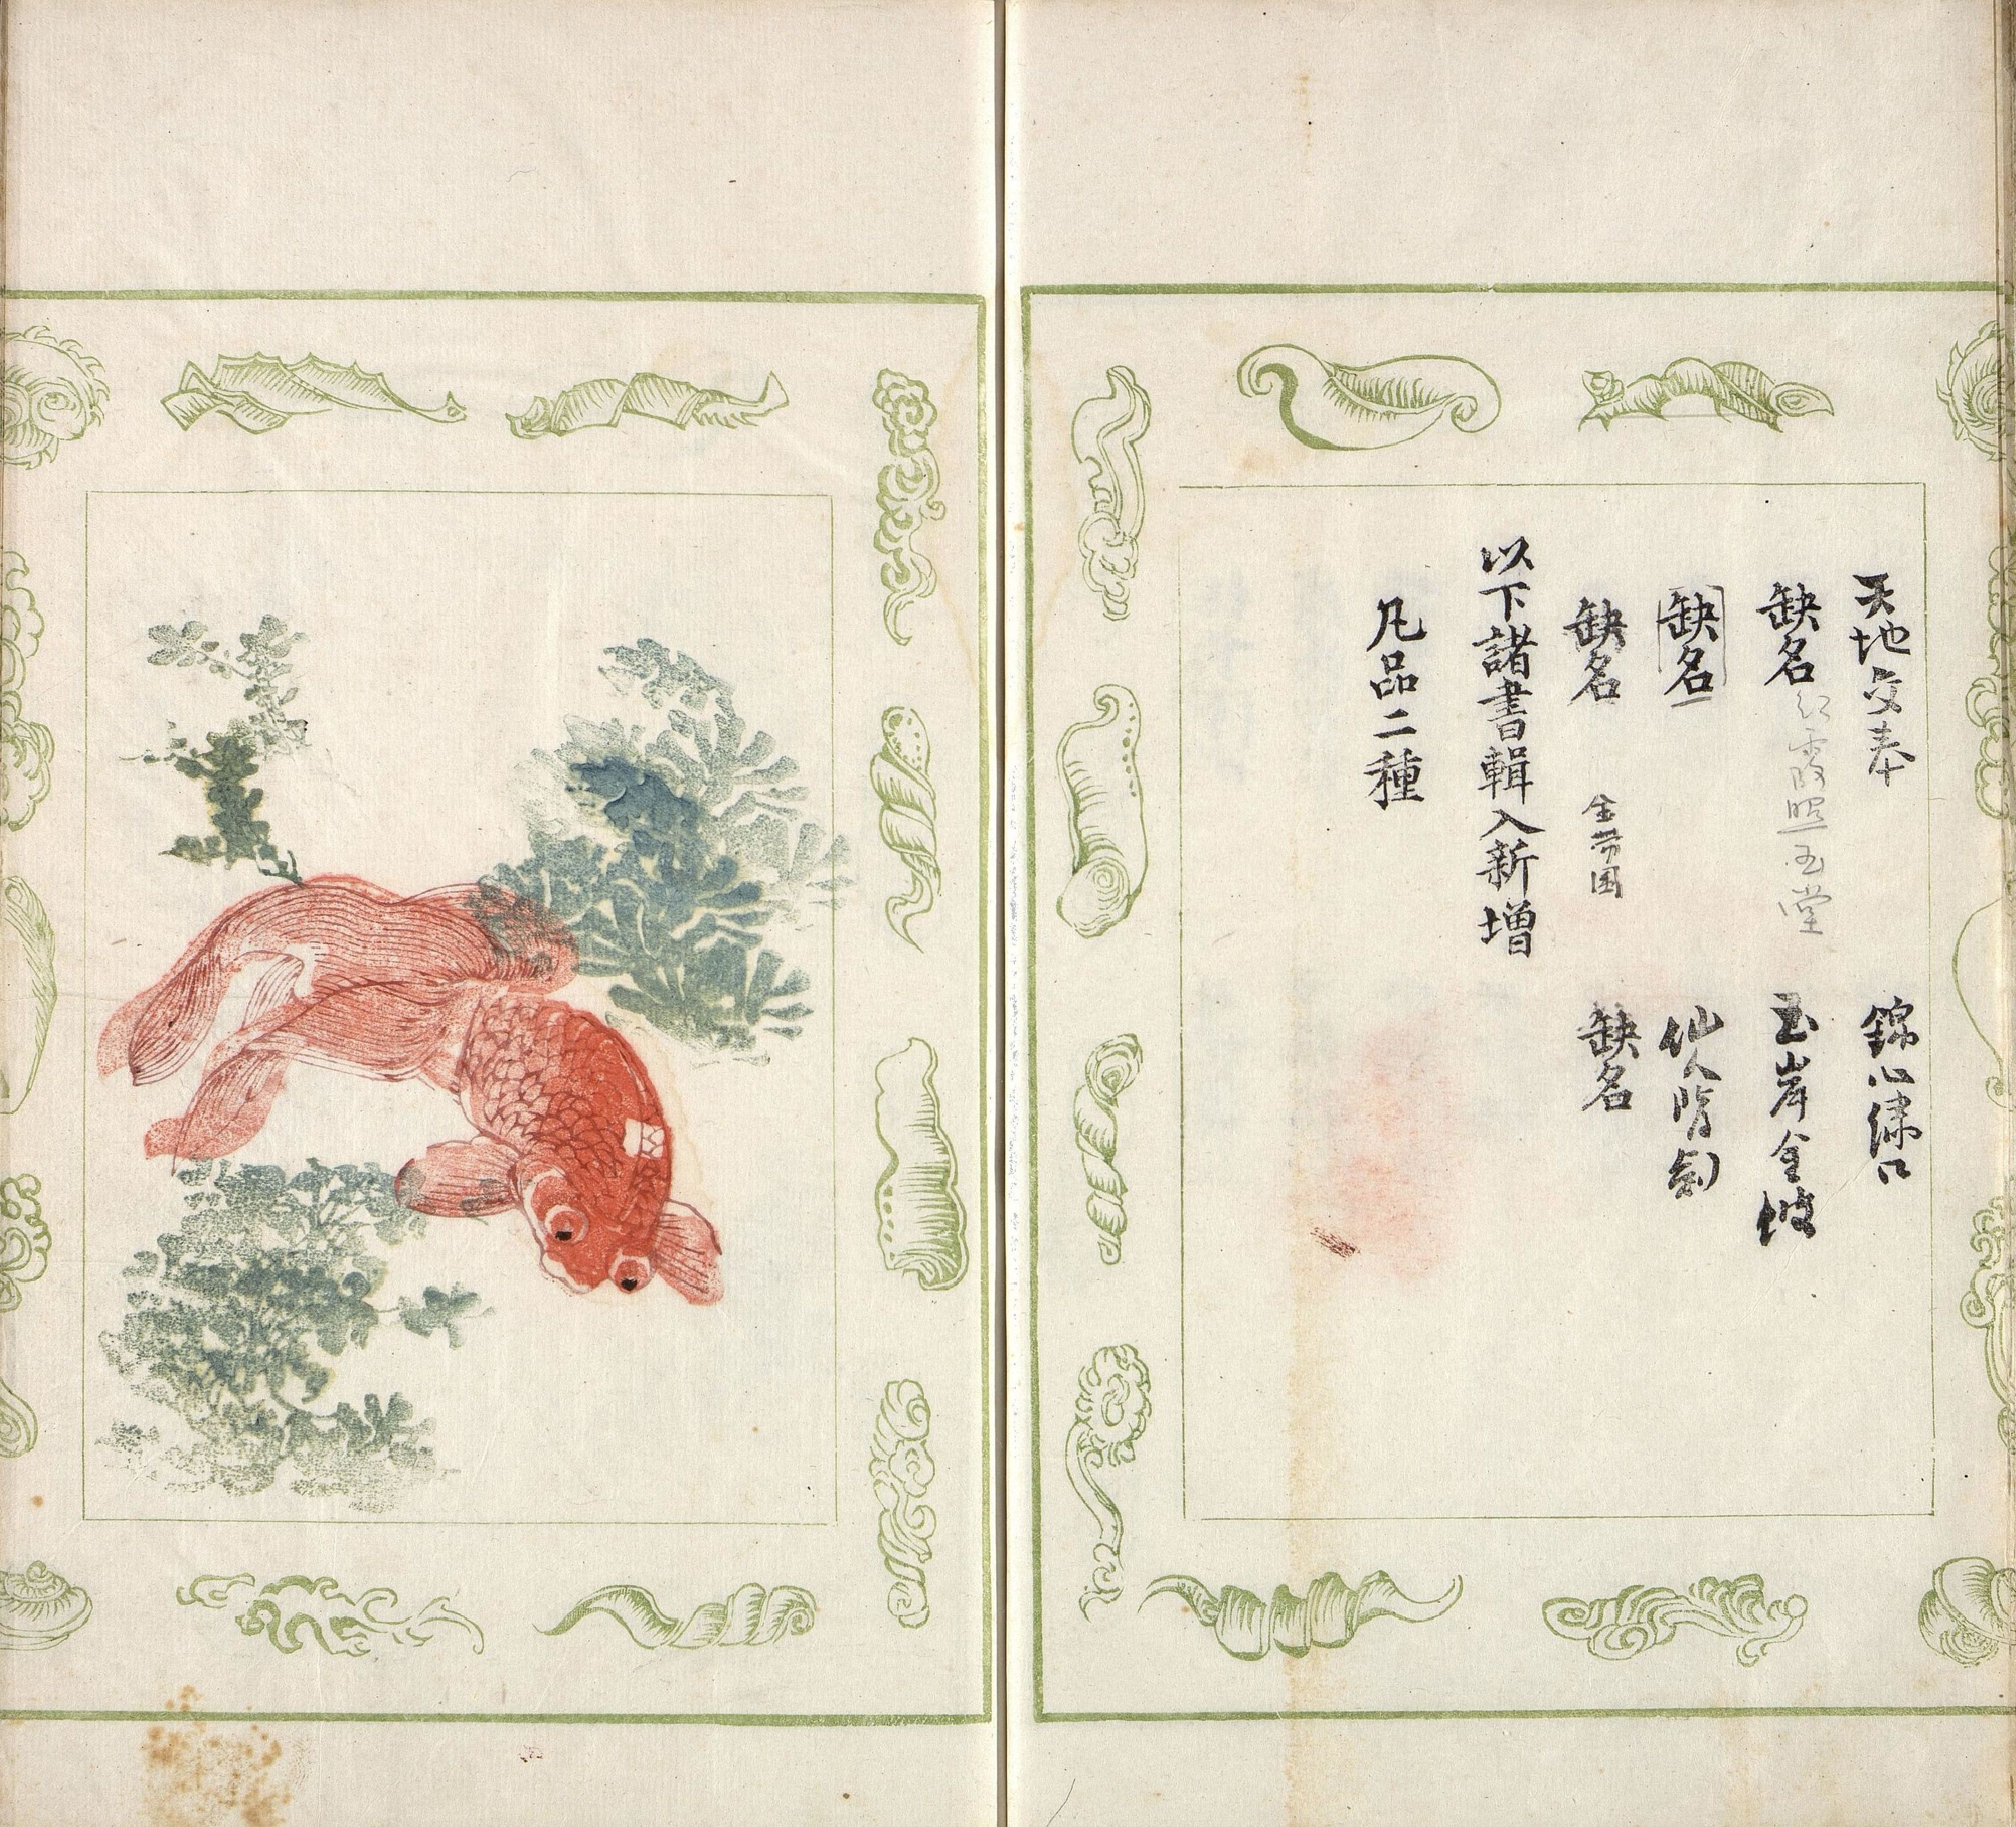 天地交奉 錦心繡口
缺名 紅霞照玉堂 玉岸金坡
缺名 仙人隋劍
缺名 金帶囲 缺名
以下諸書輯入新增
凡品二種